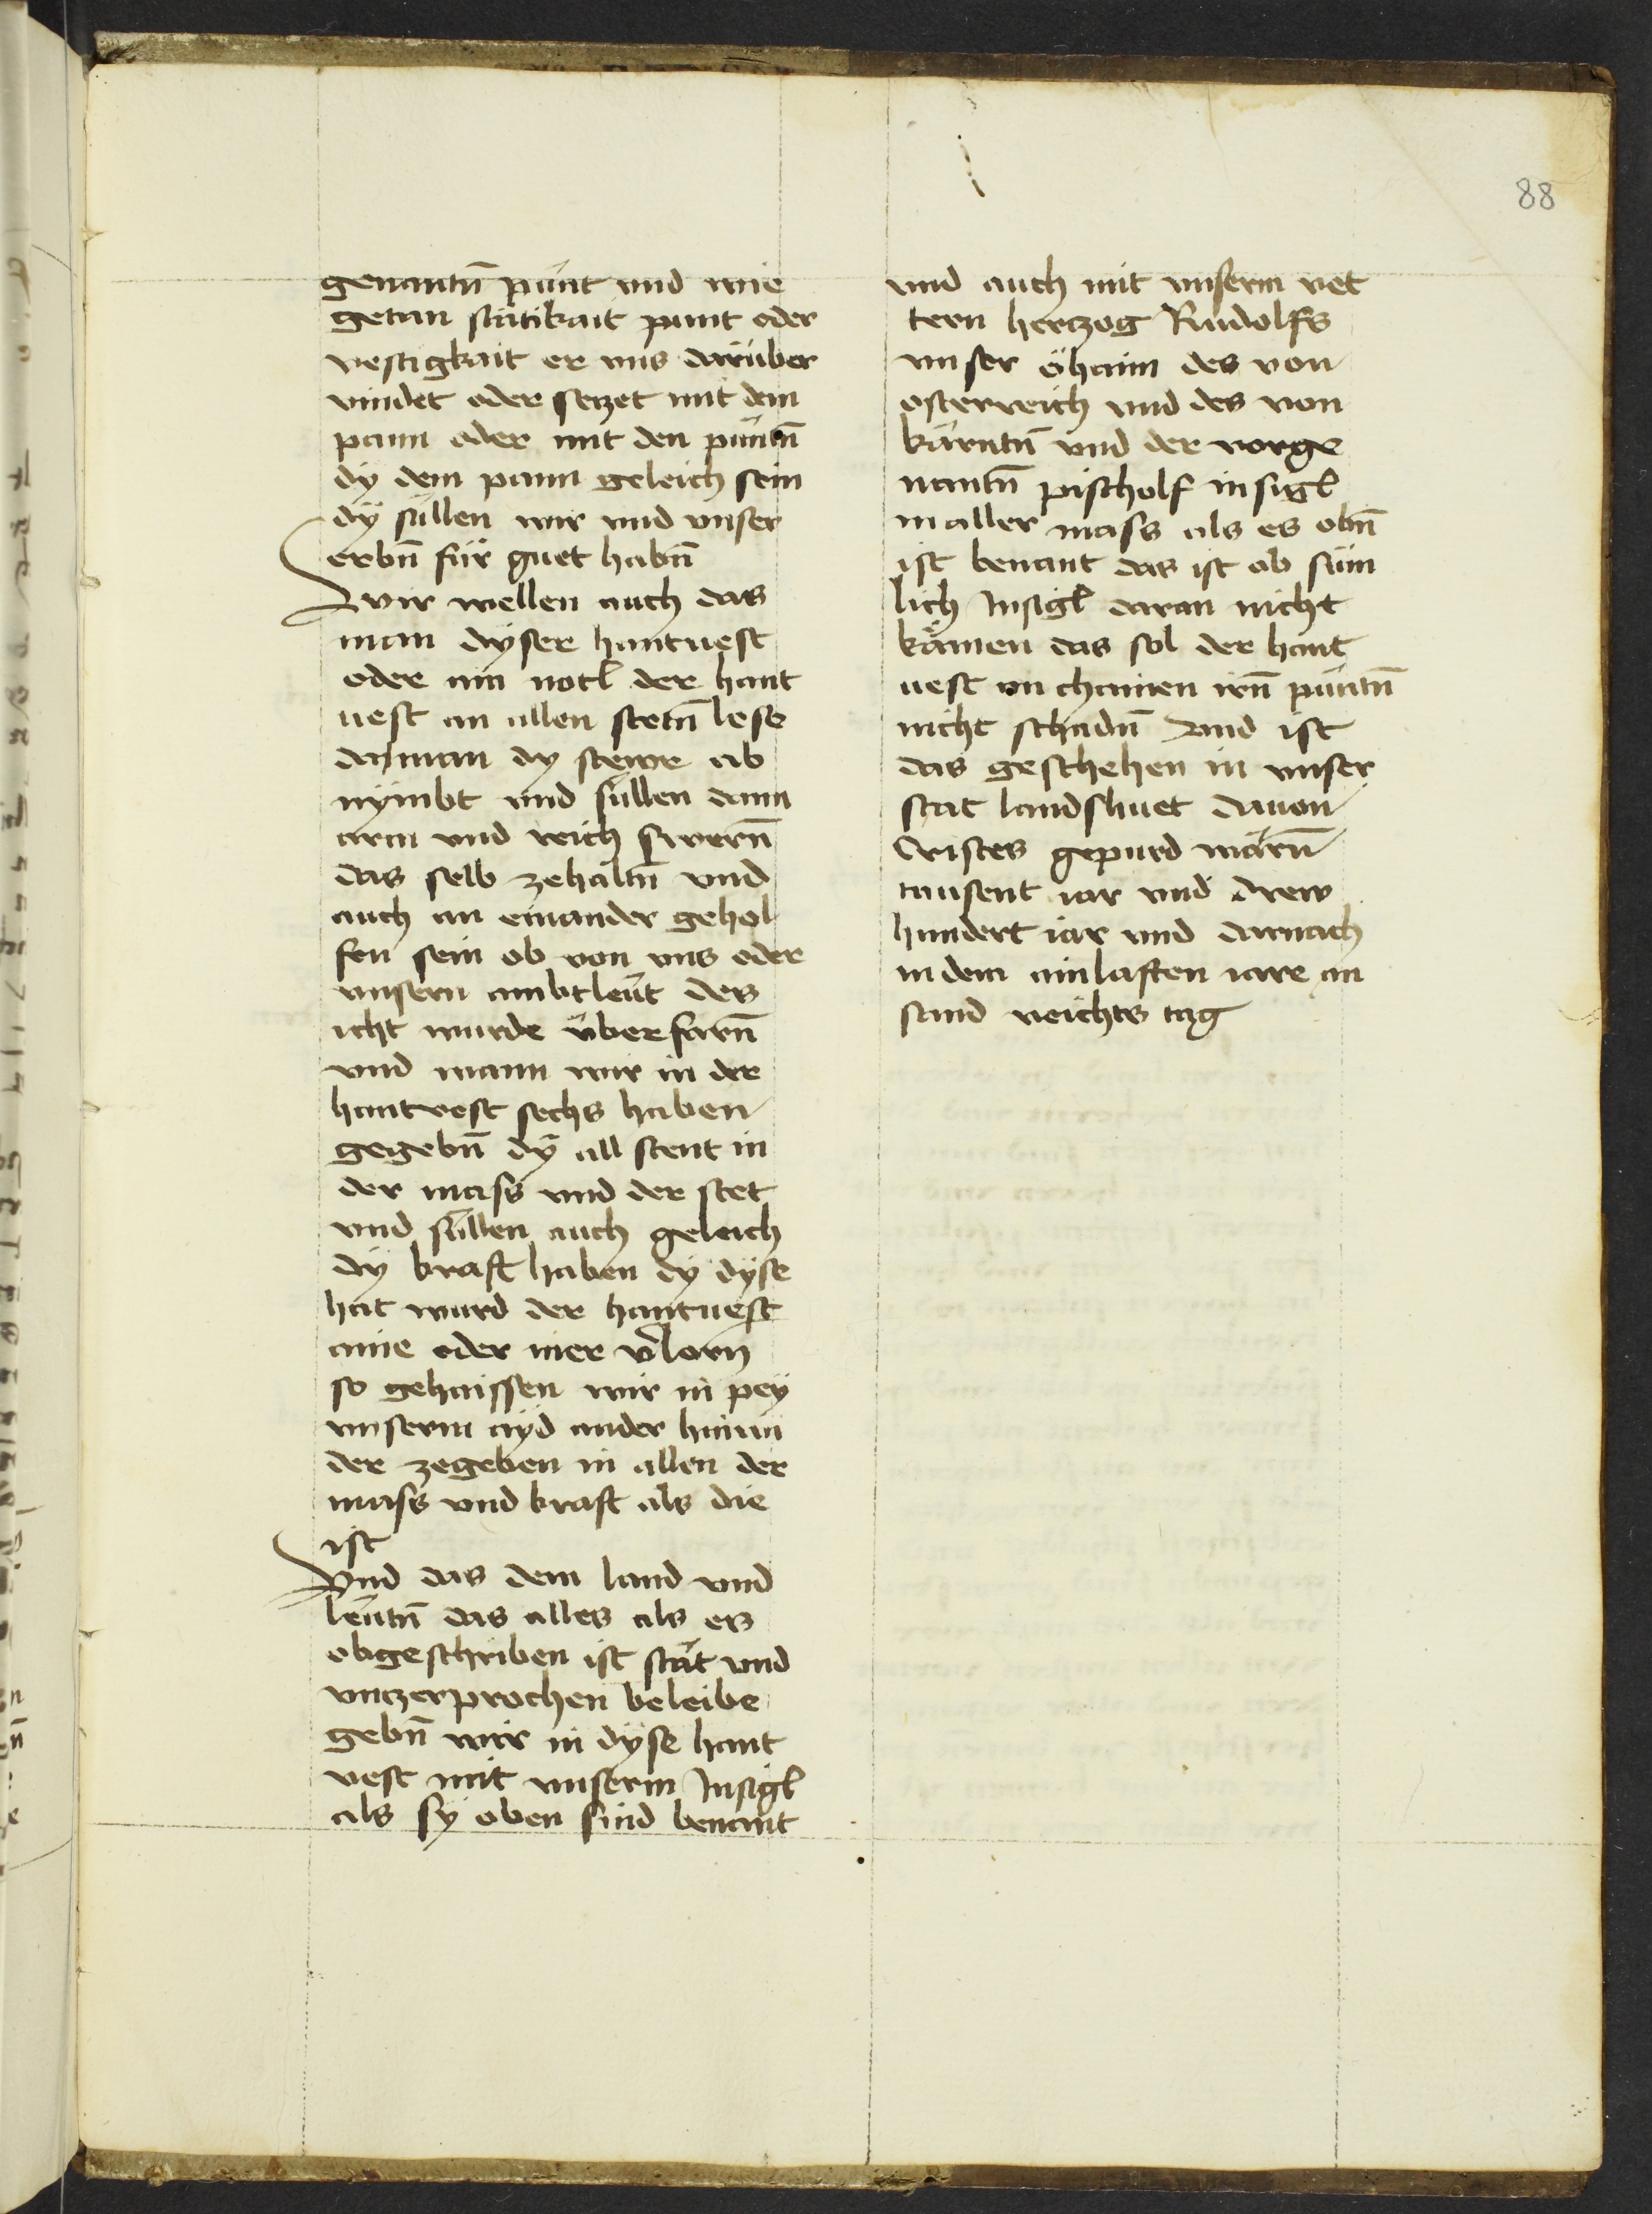 88
genantn̄ pünt vnd wie
getan stätikait punt oder
vestigkait er vns darüber
vindet oder setzet mit dem
pann oder mit den püntn̄
dÿ dem pann geleich sein
dÿ süllen wir vnd vnser
erbn̄ für guet habn̄
Wir wellen auch das
man dÿser hantuest
oder ain notl der hant
uest an allen stetn̄ lese
da man dy stewr ab
nÿmbt vnd süllen dann
arm vnd reich swern̄
das selb zehaltn̄ vnd
auch an einander gehol
fen sein ob von vns oder
vnsern ambtleüt des
icht wurde überfarn̄
vnd wann wir in der
hantvest sechs haben
gegebn̄ dÿ all stent in
der mass vnd der stet
vnd süllen auch geleich
dÿ kraft haben dÿ dÿse
hat wurd der hantuest
aine oder mer v̄lorn
so gehaissen wir in peÿ
vnserm aÿd ander hinwi
der zegeben in allen der
mass vnd kraft als die
ist
Vnd das dem land vnd
leütn̄ das alles als es
obgeschriben ist stät vnd
vnczerprochen beleibe
gebn̄ wir in dÿse hant
vest mit vnserm Insigl
als sÿ oben sind benant
vnd auch mit vnserm vet
tern hertzog Rudolfs
vnser öhaim des von
osterreich vnd des von
kärntn̄ vnd der vorge
nantn̄ pischolf insigl
in aller mass als es obn̄
ist benant das ist ob süm
lich Insigl daran nicht
kämen das sol der hant
uest an chainen irn̄ püntn̄
nicht schadn̄ Vnd ist
das geschehen in vnser
stat landshuet da von
Cristes gepurd warn̄
tausent iar vnd drew
hundert iar vnd darnach
in dem ainlaften iare an
sand veichts tag